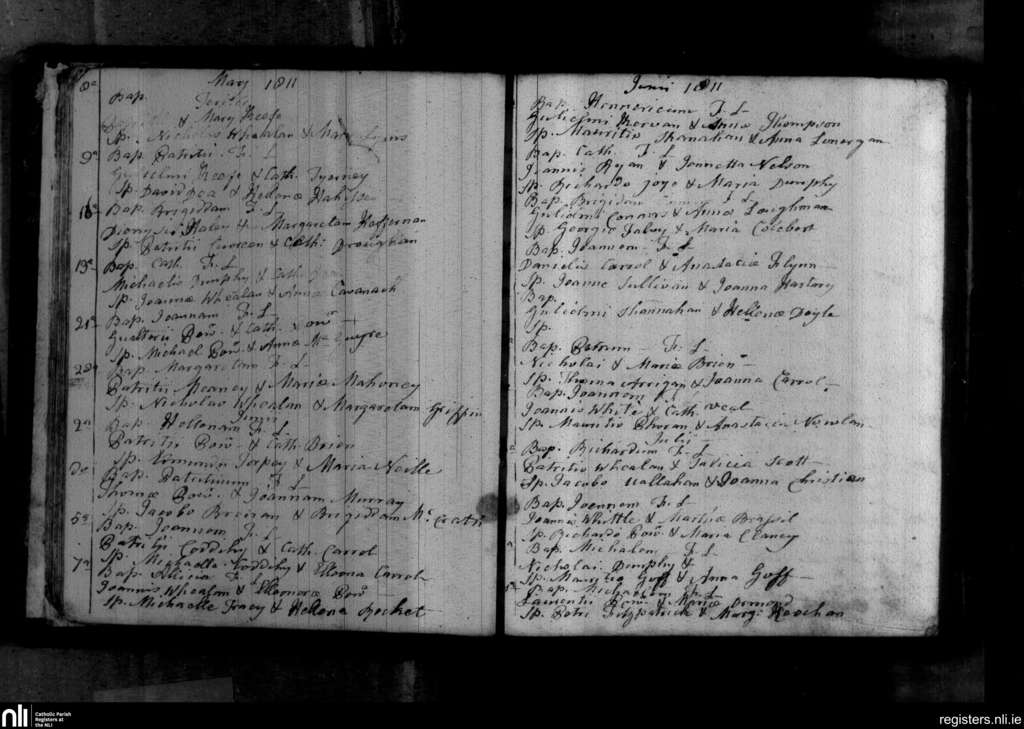 May 1811
8a Bap.
& Mary Keefe
Sp. Nicholas Whealan & Mary
9a Bap. Patritii F. L
Gulielmi Keefe & Cath. Tyerney
Sp. David Roa & Helenæ
Bap. Brigiddam F. L
Dionysii Haley & Margaretam Heffernan
Sp. Patritii & Cath.
13a Bap. Cath. F. L
Michaelis Dunphy & Cath
Sp. Joannæ Whealan & Annæ Cavanagh
21a Bap. Joannam F. L
Gualterii Bowr & Cath.
Sp. Michael Bowr & Anna Mc Guyre
22a Bap. Margaretam F. L
Patritii Meaney & Mariæ Mahoney
Sp. Nicholas Whealan & Margaretam Griffin
Junii
2a Bap. Hellonam F. L
Patritii Bowr & Cath. Brien
Sp. Edmundu Torpey & Maria Neille
Bap. F. L
Thomæ Bowr & Joannam Murray
Sp. Jacobo & Brigiddam Mc
5a Bap. Joannem F. L
Patritii Coddihy & Cath. Carrol
7a Sp. Michaelle Coddihy & Elloona Carrol
Bap. Alicia F. L
Joannis Whealan & Elleonoræ Bowr
Sp. Michaelle Tracy & Hellena Rochet
Junii 1811
Bap. Honnoricum F. L
Gulielmi Kervan & Anna Thompson
Sp. Mauritio Shanahan & Anna Lonergan
Bap. Cath. F. L
Joannis Ryan & Jonnetta Nelson
Sp. Richardo Joye & Maria Dunphy
Bap. Brigidam F. L
Gulielmi Connors & Anna Loughman
Sp. Georgio & Maria Colebert
Bap. Joannem F. L
Danielis Carrol & Anastaciæ Flynn
Sp. Joanne Sullivan & Joanna
Bap.
Gulielmi Shannahan & Hellonæ Doyle
Sp.
Bap. Petrum F. L
Nicholai & Mariæ Brien
Sp. Thoma Arrigan & Joanna Carrol
Bap. Joannem F. L
Joannis White & Cath. Veal
Sp. Mauritio & Anastacia Nowlan
Julii
Bap. Richardum F. L
Patritii Whealan & Scott
Sp. Jacobo Callahan & Joanna Christian
Bap. Joannem F. L
Joannis Whittle & Brassil
Sp. Richardo Bowr & Maria Clancy
Bap. Michalem F. L
Nicholai Dunphy &
Sp. Mauritio Goff & Anna Goff
Bap. Michaelem F. L
Laurentii Bowr & Mariæ Ormond
Sp. Petri Fitzpatrick & Marg:
nli
Catholic Parish
Registers at
the NLI
registers.nli.ie